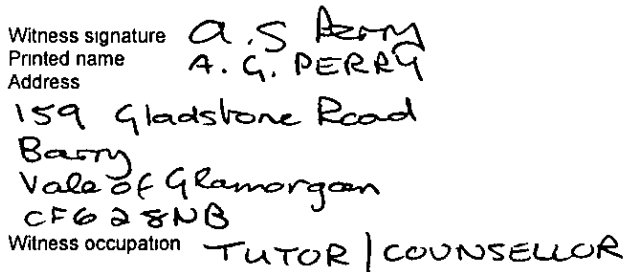 Witness signature a.S Perry
Printed name A. G. PERRY
Address
159 Gladstone Road
Barry
Vale of Glamorgan
CF62 8NB
Witness occupation TUTOR | COUNSELLOR